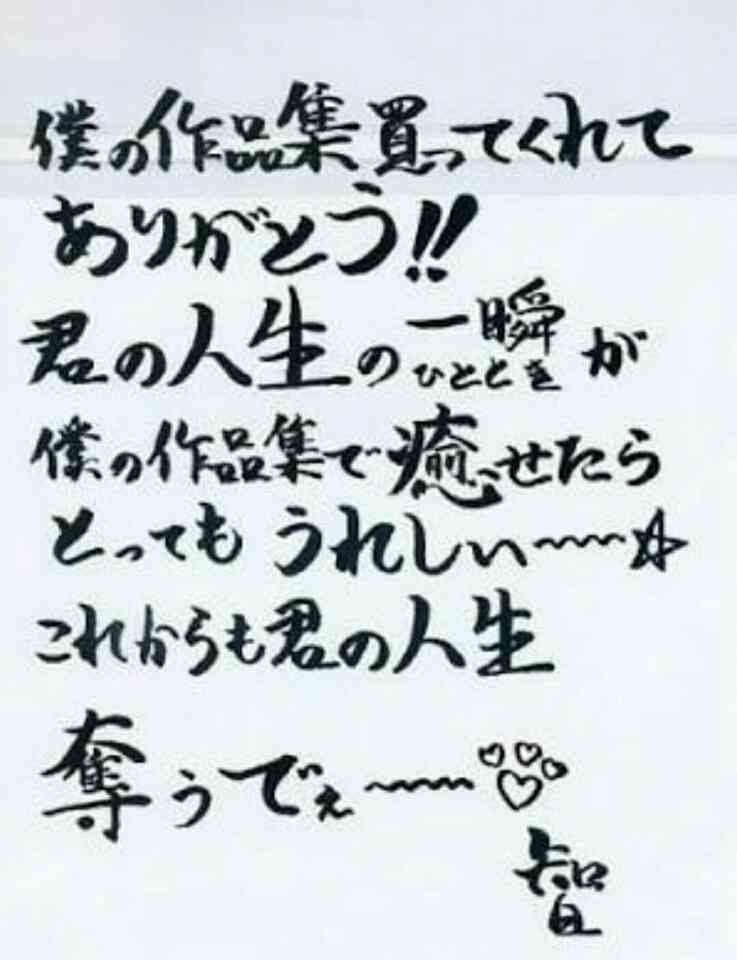 僕の作品集買ってくれて
ありがとう!!
君の人生の一瞬が
ひととき
僕の作品集で癒せたら
とってもうれしぃぃ〜〜〜☆
これからも君の人生
奪うでぇ〜〜〜♡♡♡♡
智